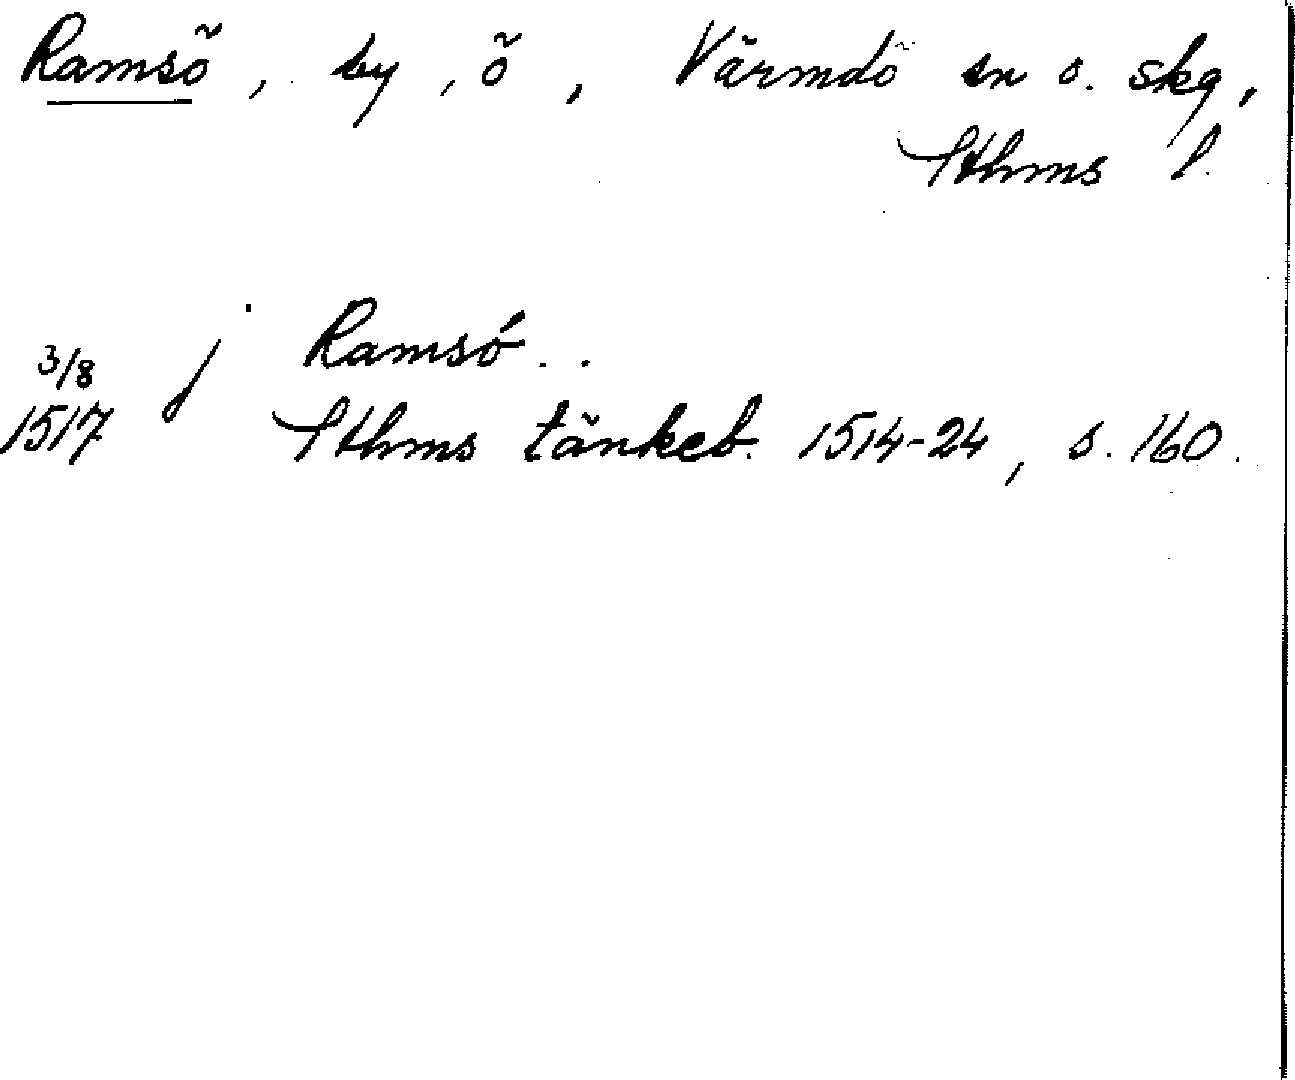 Ramsö, by, ö, Värmdö sn o. skg,
Sthms l.
3/8 j Ramsó..
1517 Sthms tänkeb. 1514-24, s. 160.